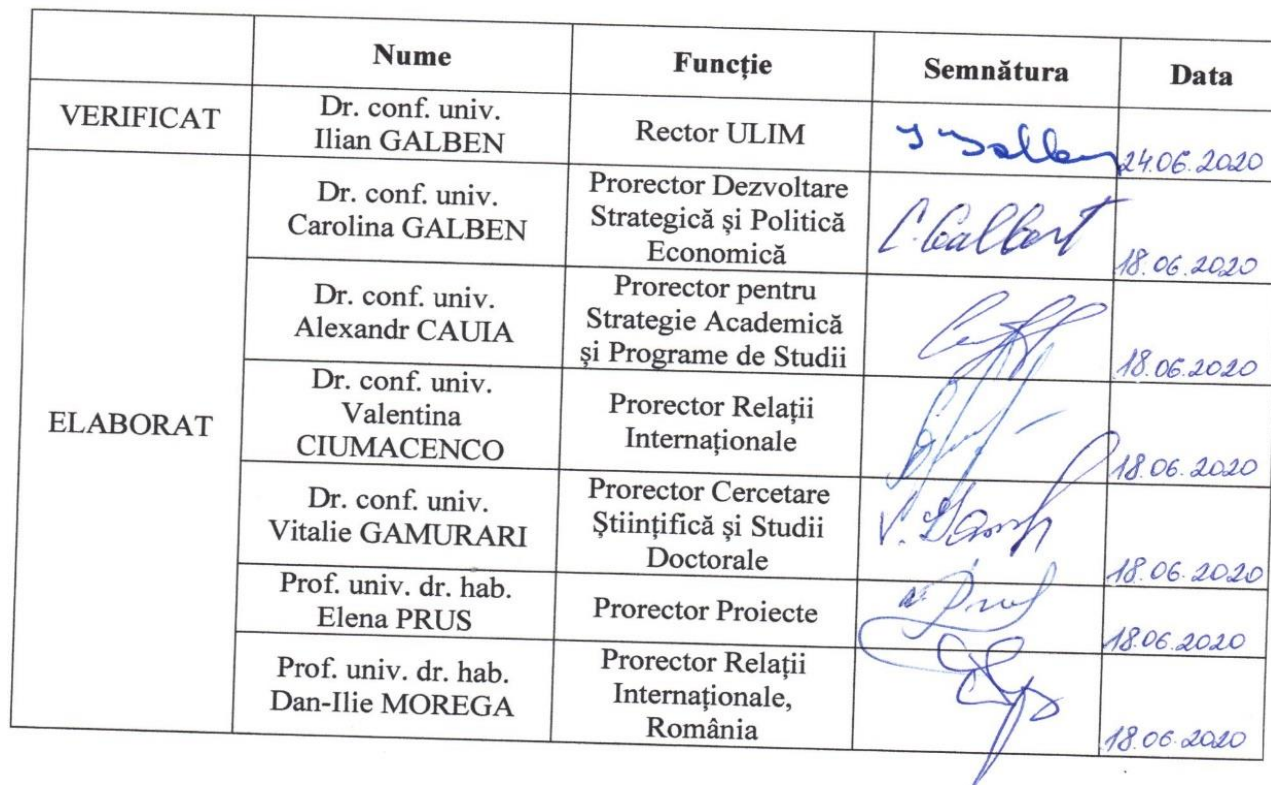 Nume Funcție Semnătura Data
VERIFICAT
Dr. conf. univ.
Ilian GALBEN
Rector ULIM
24.06.2020
ELABORAT
Dr. conf. univ.
Carolina GALBEN
Prorector Dezvoltare
Strategică și Politică
Economică
18.06.2020
Dr. conf. univ.
Alexandr CAUIA
Prorector pentru
Strategie Academică
și Programe de Studii
18.06.2020
Dr. conf. univ.
Valentina
CIUMACENCO
Prorector Relații
Internaționale
18.06.2020
Dr. conf. univ.
Vitalie GAMURARI
Prorector Cercetare
Științifică și Studii
Doctorale
18.06.2020
Prof. univ. dr. hab.
Elena PRUS
Prorector Proiecte
18.06.2020
Prof. univ. dr. hab.
Dan-Ilie MOREGA
Prorector Relații
Internaționale,
România
18.06.2020